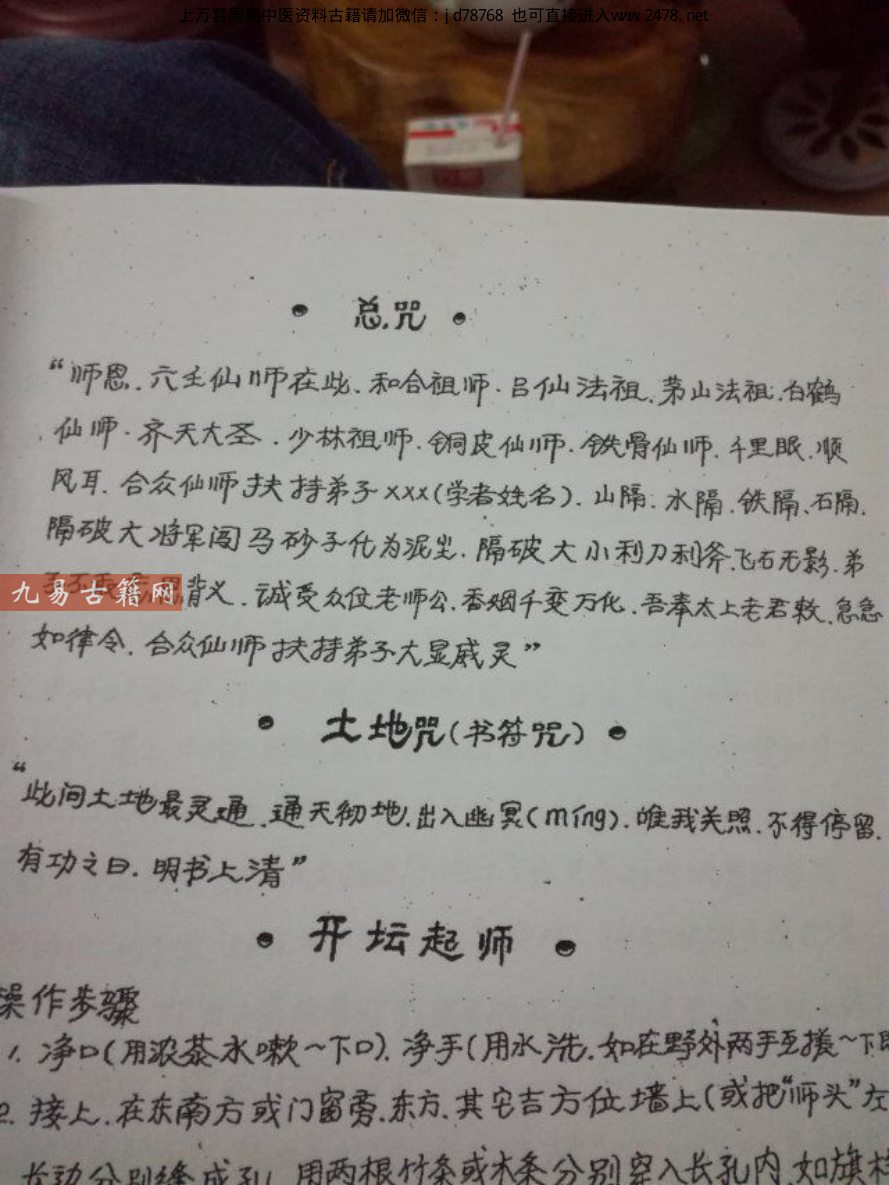 上万套周易中医资料古籍请加微信：jd78768 也可直接进入www.2478.net
• 总咒 •
“师恩．六壬仙师在此．和合祖师．吕仙法祖．茅山法祖．白鹤
仙师．齐天大圣．少林祖师．铜皮仙师．铁骨仙师．千里眼．顺
风耳．合众仙师扶持弟子xxx(学者姓名)．山隔．水隔．铁隔．石隔．
隔破大将军闯马砂子化为泥尘．隔破大小利刀利斧．飞石无影．弟
背义．诚受众位老师公．香烟千变万化．吾奉太上老君敕．急急
九易古籍网
如律令．合众仙师扶持弟子大显威灵”
• 土地咒(书符咒) •
“此间土地最灵通．通天彻地．出入幽冥(míng)．唯我关照．不得停留．
有功之日．明书上清”
• 开坛起师 •
操作步骤
1. 净口(用浓茶水嗽～下口)．净手(用水洗．如在野外两手互搓～下即
2. 接上．在东南方或门窗旁．东方．其它吉方位墙上(或把“师头”左
长边分别缝成孔．用两根竹条或木条分别穿入长孔内．如旗